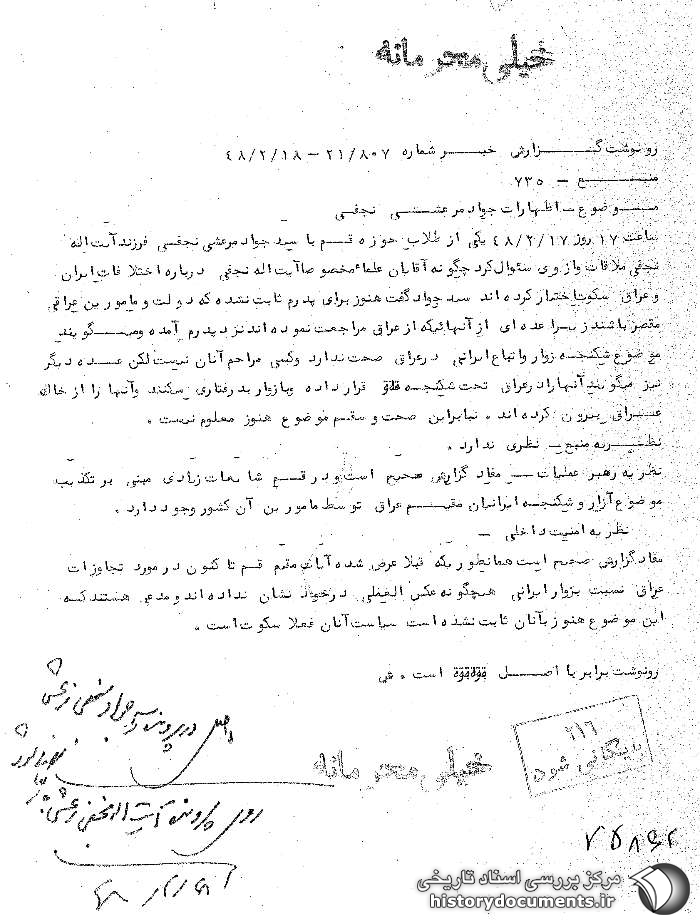 خیلی محرمانه
رونوشت گـــزارش خبـــر شماره ۲۱/۸۰۷ – ۴۸/۲/۱۸
منبـــع – ۷۳۵
مـــوضوع – اظهارات جواد مرعشـــی نجفـــی
ساعت ۱۷ روز ۴۸/۲/۱۷ یکی از طلاب حوزه قـــم با سید جواد مرعشی نجفـــی فرزند آیت اله
نجفی ملاقات و از وی سئوال کرد چگونه آقایان علماء مخصوصا آیت اله نجفی درباره اختلافات ایران
و عراق سکوت اختیار کرده اند سید جواد گفت هنوز برای پدرم ثابت نشده که دولت و مامورین عراقی
مقصر باشند زیـــرا عده ای از آنهائیکه از عراق مراجعت نموده اند نزد پدرم آمده و میـــگویند
موضوع شکنجـــه زوار و اتباع ایرانی در عراق صحت ندارد و کسی مزاحم آنان نیست لکن عـــده دیگر
نیز میگویند آنها را در عراق تحت شکنجـــه قرار داده و با زوار بدرفتاری میکنند و آنها را از خاک
عـــراق بیرون کرده اند . بنابراین صحت و سقـــم موضوع هنوز معلوم نیست .
نظـــریه منبع – نظری ندارد .
نظریه رهبر عملیات – مفاد گزارش صحیح است و در قـــم شایعات زیادی مبنی بر تکذیب
موضوع آزار و شکنجـــه ایرانیان مقیـــم عراق توسط مامورین آن کشور وجود دارد .
نظریه امنیت داخلی –
مفاد گزارش صحیح است همانطوریکه قبلا عرض شده آیات مقیم قـــم تا کنون در مورد تجاوزات
عراق نسبت بزوار ایرانی هیچگونه عکس العملی در خود نشان نداده اند و مدعی هستند کـــه
این موضوع هنوز بآنان ثابت نشده است سیاست آنان فعلا سکوت است .
رونوشت برابر با اصـــل است . ش
اصل در پرونده سید جواد نجفی مرعشی
۶۱۶
بایگانی شود
خیلی محرمانه
روی پرونده آیت اله نجفی مرعشی
مرکز بررسی اسناد تاریخی
historydocuments.ir